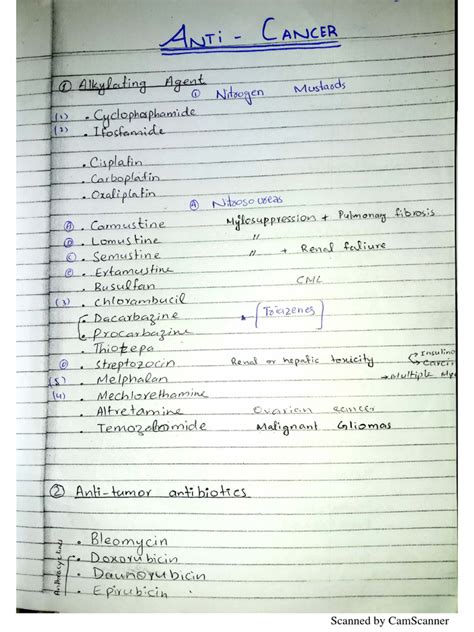 ANTI - CANCER
① Alkylating Agent
① Nitrogen Mustards
(1) . Cyclophosphamide
(2) . Ifosfamide
. Cisplatin
. Carboplatin
. Oxaliplatin
Nitrosoureas
. Carmustine Mylosuppression + Pulmonary fibrosis
. Lomustine "
. Semustine " + Renal faliure
. Estamustine
. Busulfan CML
(3) . Chlorambucil
. Dacarbazine [Triazenes]
. Procarbazine
. Thiotepa
. Streptozocin Renal or hepatic toxicity Insulino
(5) . Melphalan → Multiple
(4) . Mechlorethamine
. Altretamine Ovarian cancer
. Temozolomide Malignant Gliomas
② Anti-tumor antibiotics
. Bleomycin
. Doxorubicin
. Daunorubicin
. Epirubicin
Scanned by CamScanner